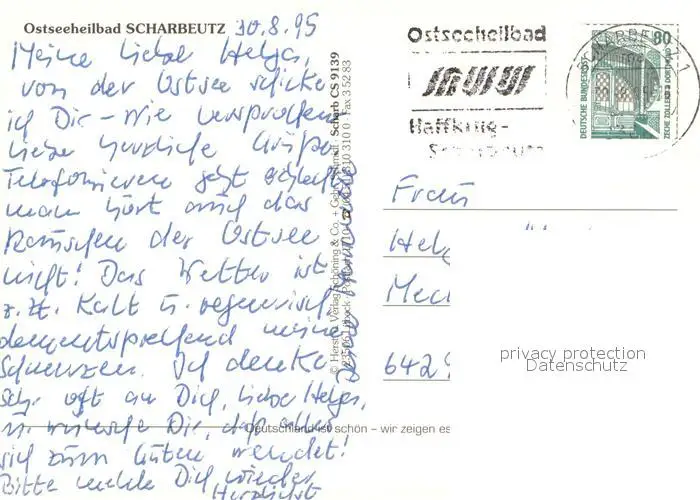 Ostseeheilbad SCHARBEUTZ 30.8.95
Meine liebe Helga,
von der Ostsee schicke
ich Dir – wie versprochen
liebe herzliche Grüße.
Telefonieren geht schlecht
man hört auch das
Rauschen der Ostsee
nicht! Das Wetter ist
z. Zt. kalt u. regnerisch
dementsprechend meine
Schmerzen. Ich denke
sehr oft an Dich, liebe Helga,
u. wünsche Dir, daß alles
sich zum Guten wendet!
Bitte melde Dich wieder
Herzlichst
© Herstell. Verlag Schöning & Co. + Gebr. Schmidt
Scharb CS 9139
Fax 3 52 83
Deutschland ist schön – wir zeigen es
Ostseeheilbad
Haffkrug-
Scharbeutz
80
DEUTSCHE BUNDESPOST
ZECHE ZOLLERN 2 DORTMUND
Frau
Hel
6429
privacy protection
Datenschutz